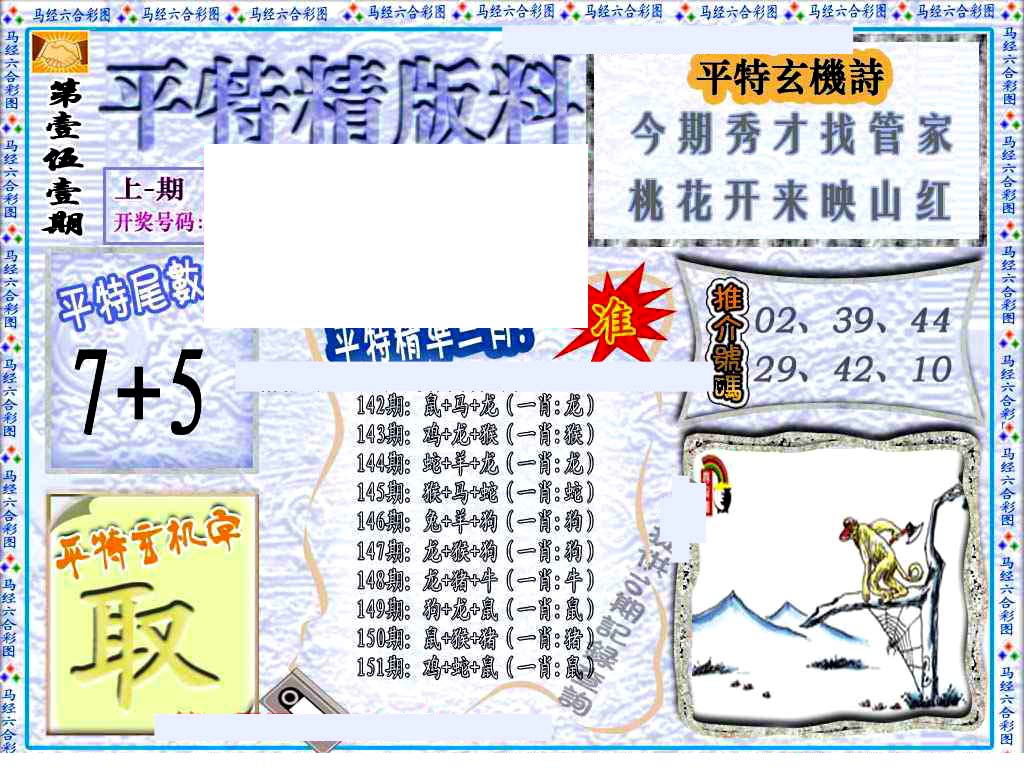 马经六合彩图 马经六合彩图 马经六合彩图 马经六合彩图 马经六合彩图 马经六合彩图 马经六合彩图 马经六合彩图 马经六合彩图
第壹伍壹期
平特精版料
上-期
开奖号码:
平特玄機詩
今期秀才找管家
桃花开来映山红
平特尾數
7+5
平特精準一肖:
准
推介號碼
02、39、44
29、42、10
142期: 鼠+马+龙(一肖:龙)
143期: 鸡+龙+猴(一肖:猴)
144期: 蛇+羊+龙(一肖:龙)
145期: 猴+马+蛇(一肖:蛇)
146期: 兔+羊+狗(一肖:狗)
147期: 龙+猴+狗(一肖:狗)
148期: 龙+猪+牛(一肖:牛)
149期: 狗+龙+鼠(一肖:鼠)
150期: 鼠+猴+猪(一肖:猪)
151期: 鸡+蛇+鼠(一肖:鼠)
平特玄机字
取
马经六合彩图 马经六合彩图 马经六合彩图 马经六合彩图 马经六合彩图 马经六合彩图 马经六合彩
马经六合彩图 马经六合彩图 马经六合彩图 马经六合彩图 马经六合彩图 马经六合彩图 马经六合彩图